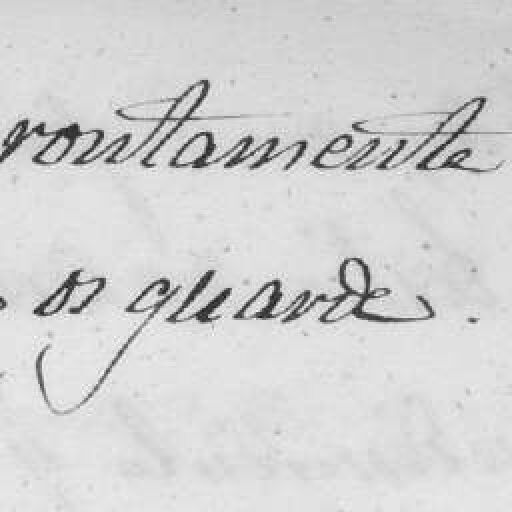 rontamente
os guarde.